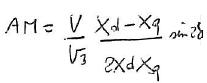 AM = \frac{V}{V_3} \frac{X_d - X_q}{2X_dX_q} \sin 2\delta